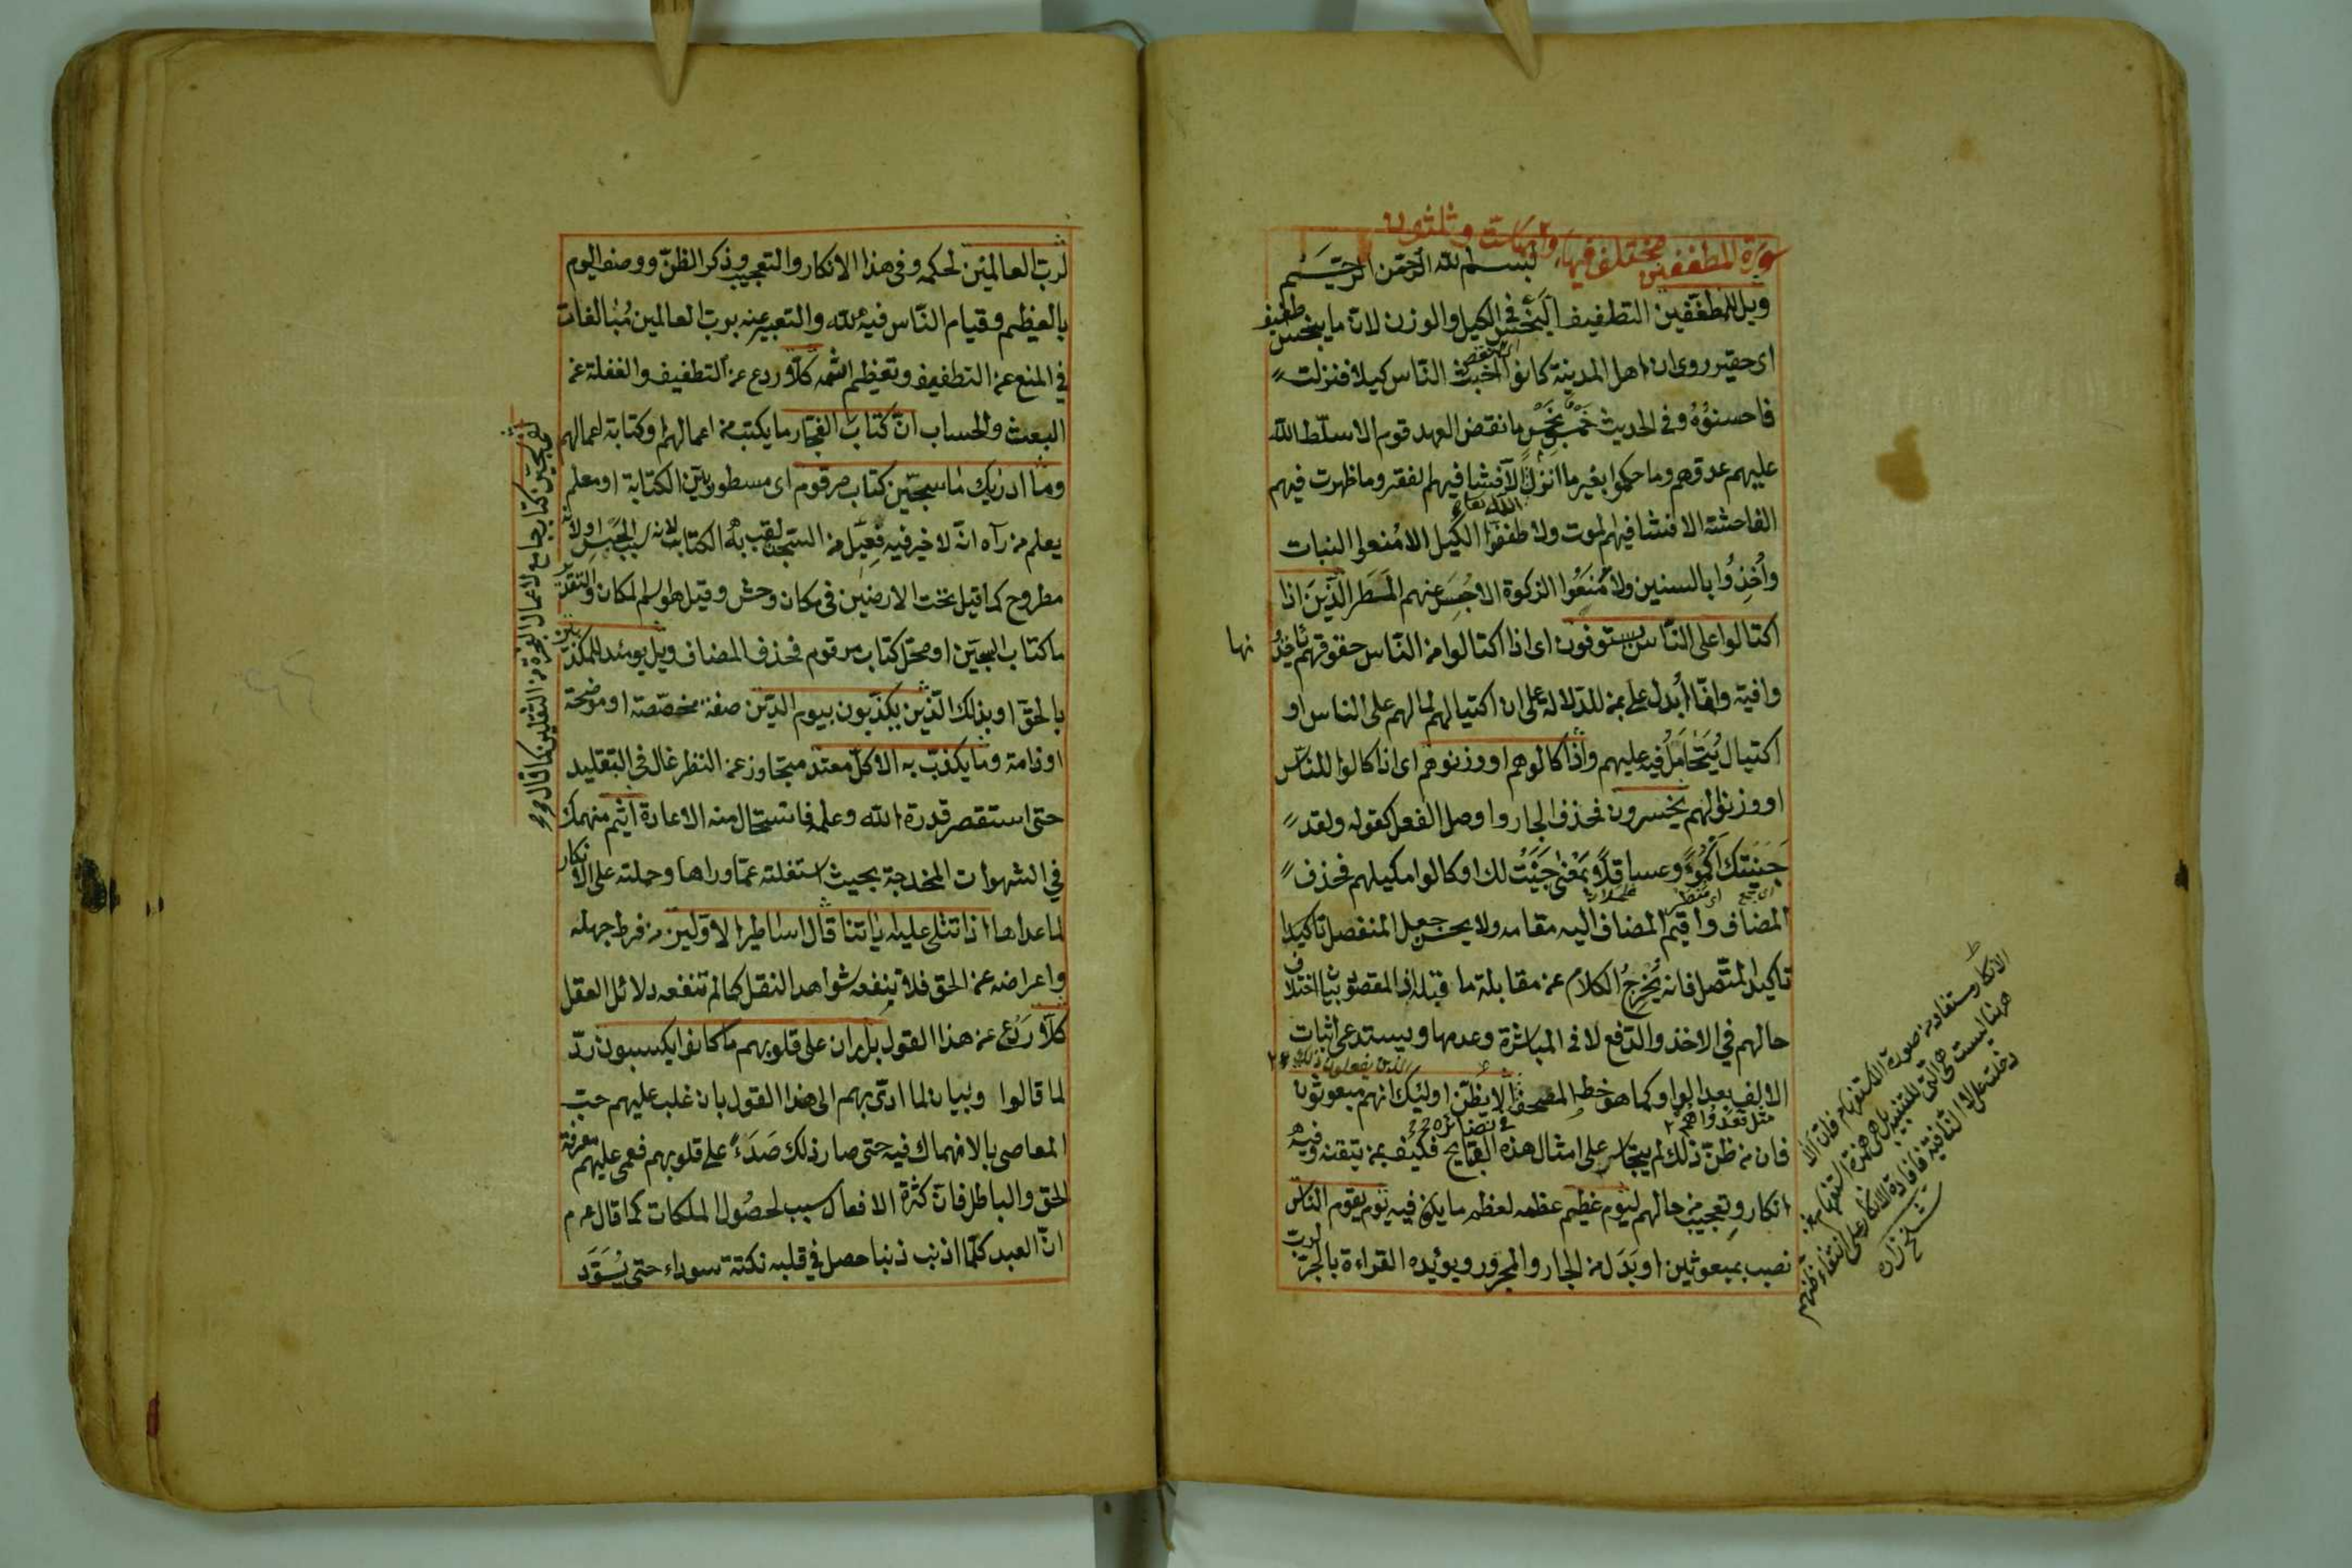 سورة المطففين مختلف فيها وآيها ست وثلثون
بسم الله الرحمن الرحيم
ويل للمطففين التطفيف البخس في الكيل والوزن لان ما يبخس طفيف
اى حقير روى ان اهل المدينة كانوا اخبث الناس كيلا فنزلت
فاحسنوه وفى الحديث خمس بخمس ما نقض العهد قوم الا سلط الله
عليهم عدوهم وما حكموا بغير ما انزل الله تعالى الا فشا فيهم الفقر وما ظهرت فيهم
الفاحشة الا فشا فيهم الموت ولا طففوا الكيل الا منعوا النبات
وأخذوا بالسنين ولا منعوا الزكوة الا حبس عنهم المطر الذين اذا
اكتالوا على الناس يستوفون اى اذا اكتالوا من الناس حقوقهم ياخذونها
وافية وانما أبدل على بمن للدلالة على ان اكتيالهم لما لهم على الناس او
اكتيال يتحامل فيه عليهم واذا كالوهم او وزنوهم اى اذا كالوا للناس
او وزنوا لهم يخسرون فحذف الجار واوصل الفعل كقوله ولقد
جنيتك اكمؤا وعساقلا بمعنى جنيت لك او كالوا مكيلهم فحذف
المضاف واقيم المضاف اليه مقامه ولا يحسن جعل المنفصل تاكيدا
تاكيد المتصل فانه يخرج الكلام عن مقابلة ما قبله اذ المقصود بيان اختلاف
حالهم في الاخذ والدفع لا فى المباشرة وعدمها ويستدعى اثبات
الالف بعد الواو كما هو خط المصحف الا يظن اولئك انهم مبعوثون
الذين يفعلون ذلك
فى نضائره
فان من ظن ذلك لم يتجاسر على امثال هذه القبايح فكيف بمن تيقنه وفيه
انكار وتعجيب من حالهم ليوم عظيم عظمه لعظم ما يكون فيه يوم يقوم الناس
نصب بمبعوثين او بدل من الجار والمجرور ويؤيده القراءة بالجر لرب
الانكار مستفاد من صورة الاستفهام فان الا
ههنا ليست هى التى للتنبيه بل هى همزة الاستفهام
دخلت على لا النافية فافادة الانكار على انتفاء ظنهم
شيخ زاده
لرب العالمين لحكمه وفى هذا الانكار والتعجيب وذكر الظن ووصف اليوم
بالعظيم وقيام الناس فيه لله والتعبير عنه برب العالمين مبالغات
في المنع عن التطفيف وتعظيم اثمه كلا ردع عن التطفيف والغفلة عن
البعث والحساب ان كتاب الفجار ما يكتب من اعمالهم او كتابة اعمالهم
لفى سجين كتاب جامع لاعمال الفجرة من الثقلين كما قال
وما ادريك ما سجين كتاب مرقوم اى مسطور بين الكتابة او معلم
يعلم من رآه انه لا خير فيه فعيل من السجن لقب به الكتاب لانه سبب الحبس او لانه
مطروح كما قيل تحت الارضين فى مكان وحش وقيل هو اسم المكان والتقدير
ما كتاب السجين او محل كتاب مرقوم فحذف المضاف ويل يومئذ للمكذبين
بالحق او بذلك الذين يكذبون بيوم الدين صفة مخصصة او موضحة
او ذامة وما يكذب به الا كل معتد متجاوز عن النظر غال فى التقليد
حتى استقصر قدرة الله وعلمه فاستحال منه الاعادة اثيم منهمك
في الشهوات المخدجة بحيث استغلته عما وراها وحملته على الانكار
لما عداها اذا تتلى عليه اياتنا قال اساطير الاولين من فرط جهله
واعراضه عن الحق فلا ينفعه شواهد النقل كما لم تنفعه دلائل العقل
كلا ردع عن هذا القول بل ران على قلوبهم ما كانوا يكسبون رد
لما قالوا وبيان لما ادى بهم الى هذا القول بان غلب عليهم حب
المعاصى بالانهماك فيه حتى صار ذلك صداء على قلوبهم فعمى عليهم معرفة
الحق والباطل فان كثرة الافعال سبب لحصول الملكات كما قال عم
ان العبد كلما اذنب ذنبا حصل فى قلبه نكتة سوداء حتى يسود